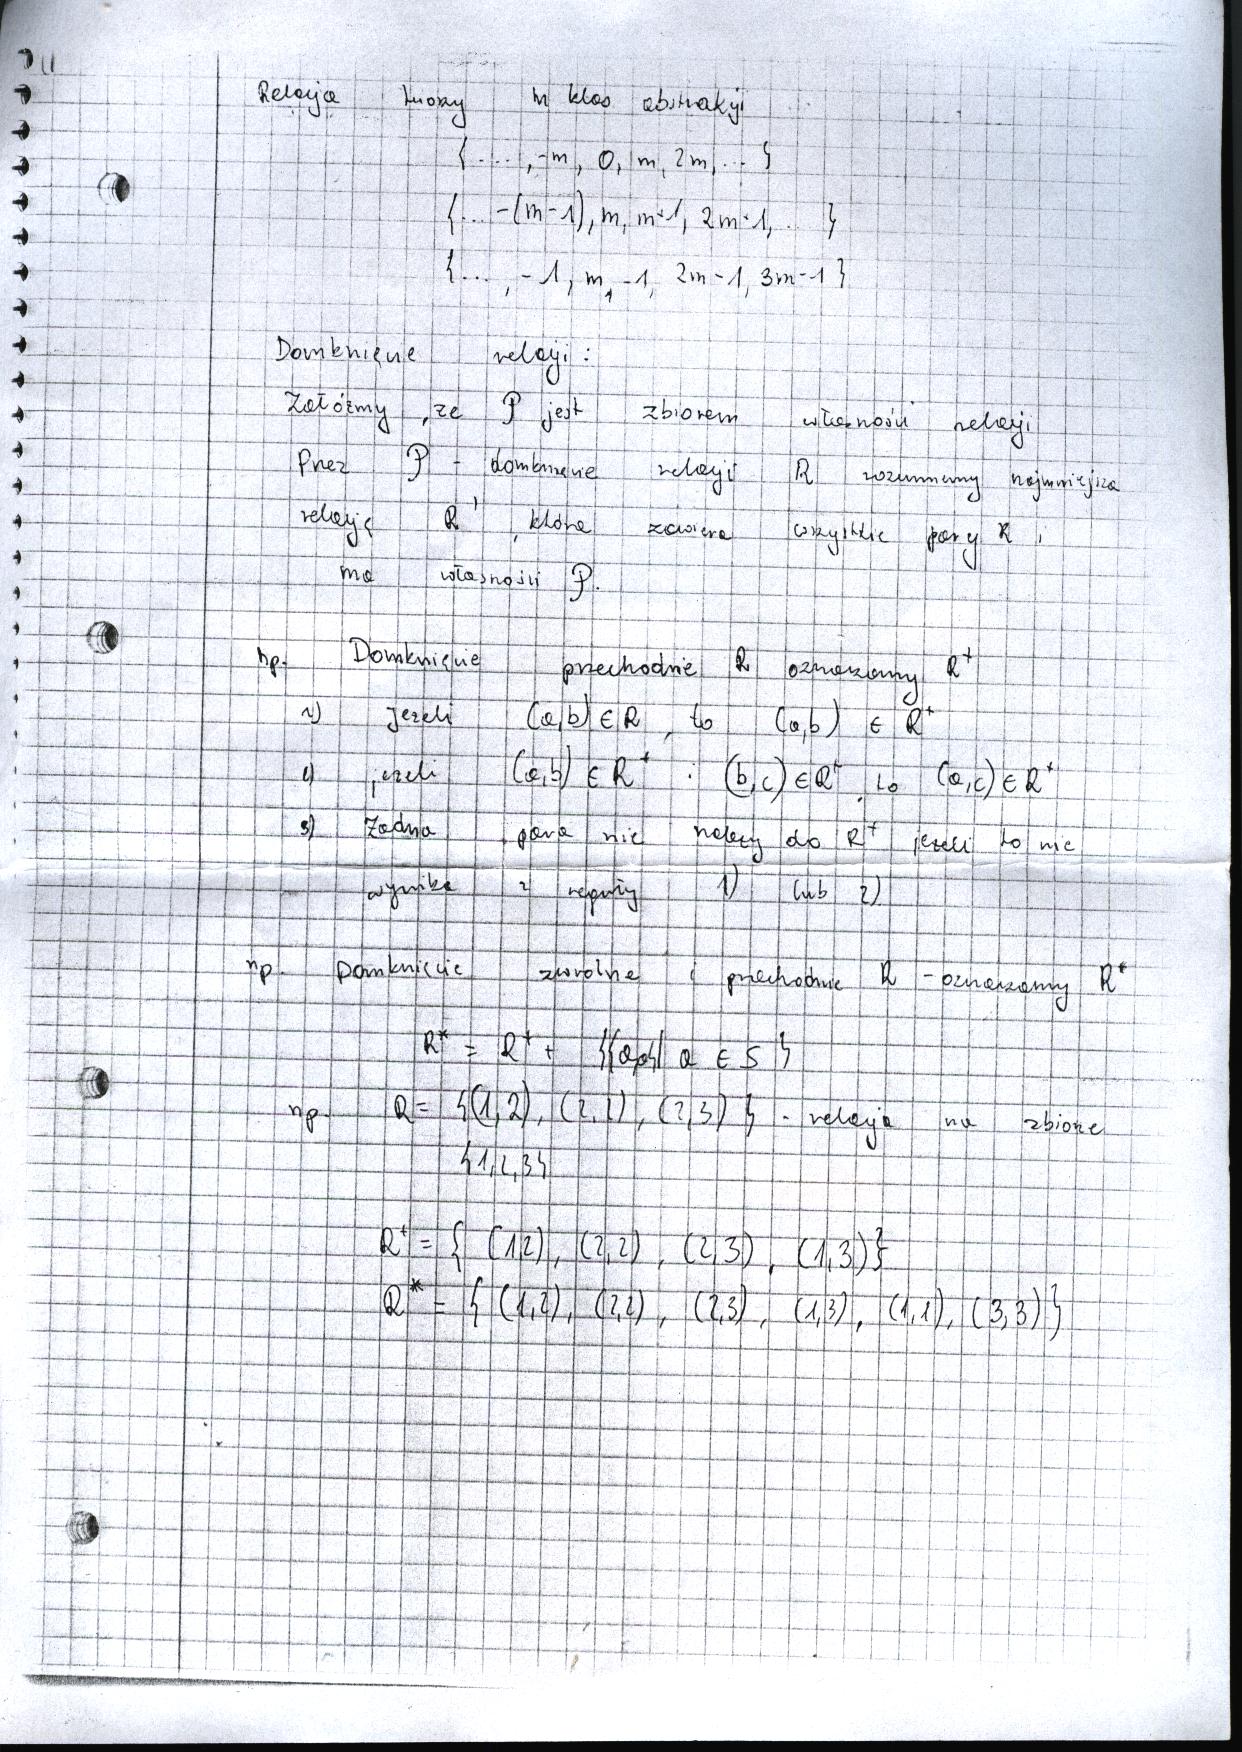 Relacja tworzy m klas abstrakcji
{ ...., -m, 0, m, 2m, ... }
{... -(m-1), m, m+1, 2m+1, ... }
{...., -1, m-1, 2m-1, 3m-1}
Domknięcie relacji:
Załóżmy, że P jest zbiorem własności relacji
Przez P - domknięcie relacji R rozumiemy najmniejszą
relację R', która zawiera wszystkie pary R i
ma własności P.
np. Domknięcie przechodnie R oznaczamy R⁺
1) jeżeli (a,b) ∈ R, to (a,b) ∈ R⁺
2) jeżeli (a,b) ∈ R⁺ i (b,c) ∈ R⁺, to (a,c) ∈ R⁺
3) Żadna para nie należy do R⁺ jeżeli to nie
wynika z reguły 1) lub 2)
np. Domknięcie zwrotne i przechodnie R - oznaczamy R*
R* = R⁺ + {(a,a)| a ∈ S }
np. R = {(1,2), (2,2), (2,3) } - relacja na zbiorze
{1,2,3}
R⁺ = { (1,2), (2,2), (2,3), (1,3)}
R* = { (1,2), (2,2), (2,3), (1,3), (1,1), (3,3)}